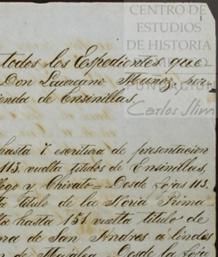 CENTRO DE
ESTUDIOS
DE HISTORIA
FUNDACIÓN
Carlos Slim
todos los Expedientes que
Don Luciano Muñoz, per
enda de Ensinillas.
hasta 7 escritura de presentacion
113. vuelta titulos de Ensinillas,
y Chivato = Desde fojas 113.
titulo de la Noria Prima
hasta 151 vuelta titulo de
de San Andres a lindes
Desde la foja